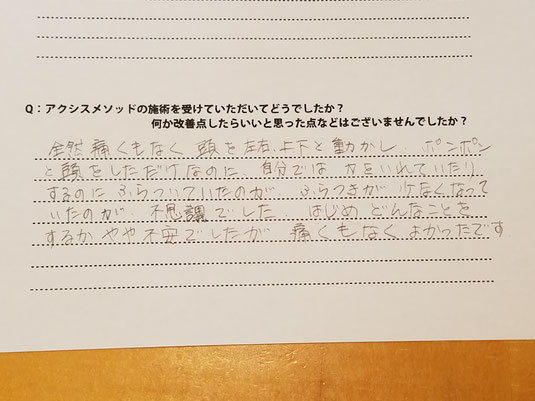 Q：アクシスメソッドの施術を受けていただいてどうでしたか？
何か改善点したらいいと思った点などはございませんでしたか？
全然痛くもなく 頭を左右、上下と動かし、ポンポン
と頭をしただけなのに、自分では 力をいれていたり
するのに ふらついていたのが、ふらつきが 少なくなって
いたのが 不思議でした はじめ どんなことを
するか やや不安でしたが 痛くもなく よかったです